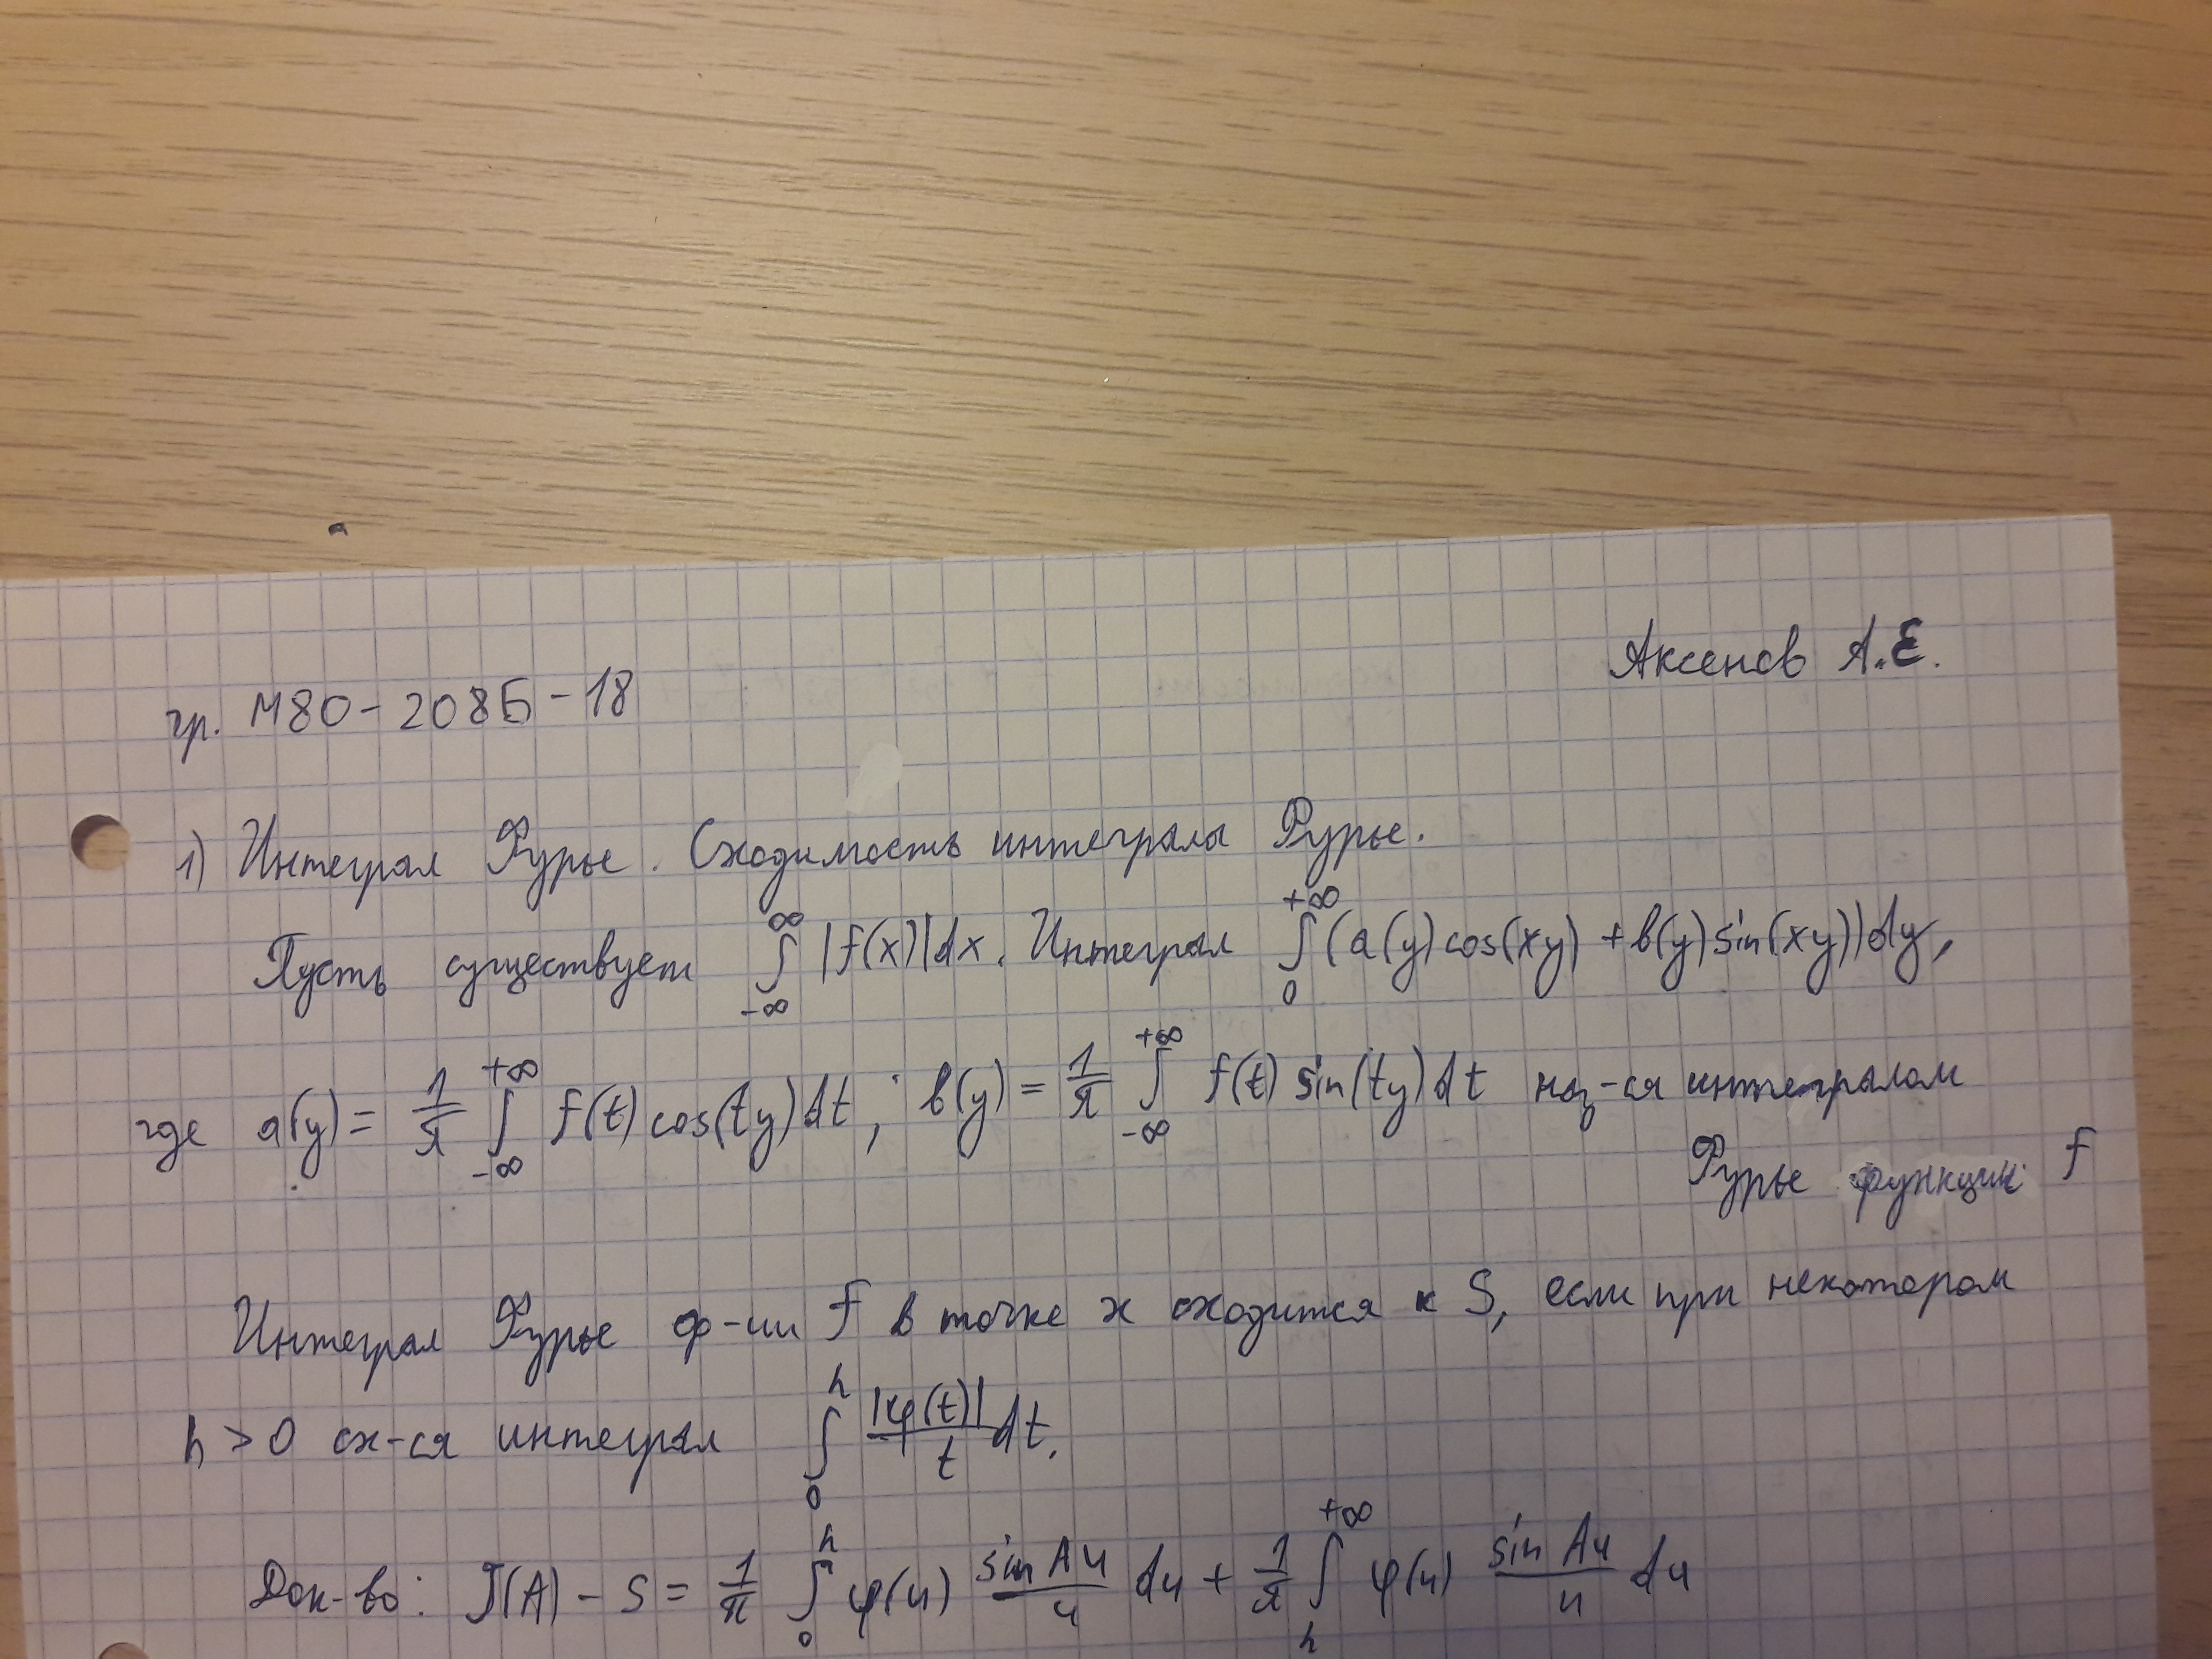 Аксенов А.Е.
гр. М80-208Б-18
1) Интеграл Фурье. Сходимость интеграла Фурье.
Пусть существует ∫_{-∞}^{∞} |f(x)|dx. Интеграл ∫_{0}^{+∞} (a(y)cos(xy) + b(y)sin(xy))dy,
где a(y) = 1/π ∫_{-∞}^{+∞} f(t)cos(ty)dt; b(y) = 1/π ∫_{-∞}^{+∞} f(t) sin(ty)dt наз-ся интегралом
Фурье функции f
Интеграл Фурье ф-ии f в точке x сходится к S, если при некотором
h > 0 сх-ся интеграл ∫_{0}^{h} |φ(t)|/t dt.
Док-во: J(A) - S = 1/π ∫_{0}^{h} φ(u) sin Au/u du + 1/π ∫_{h}^{+∞} φ(u) sin Au/u du